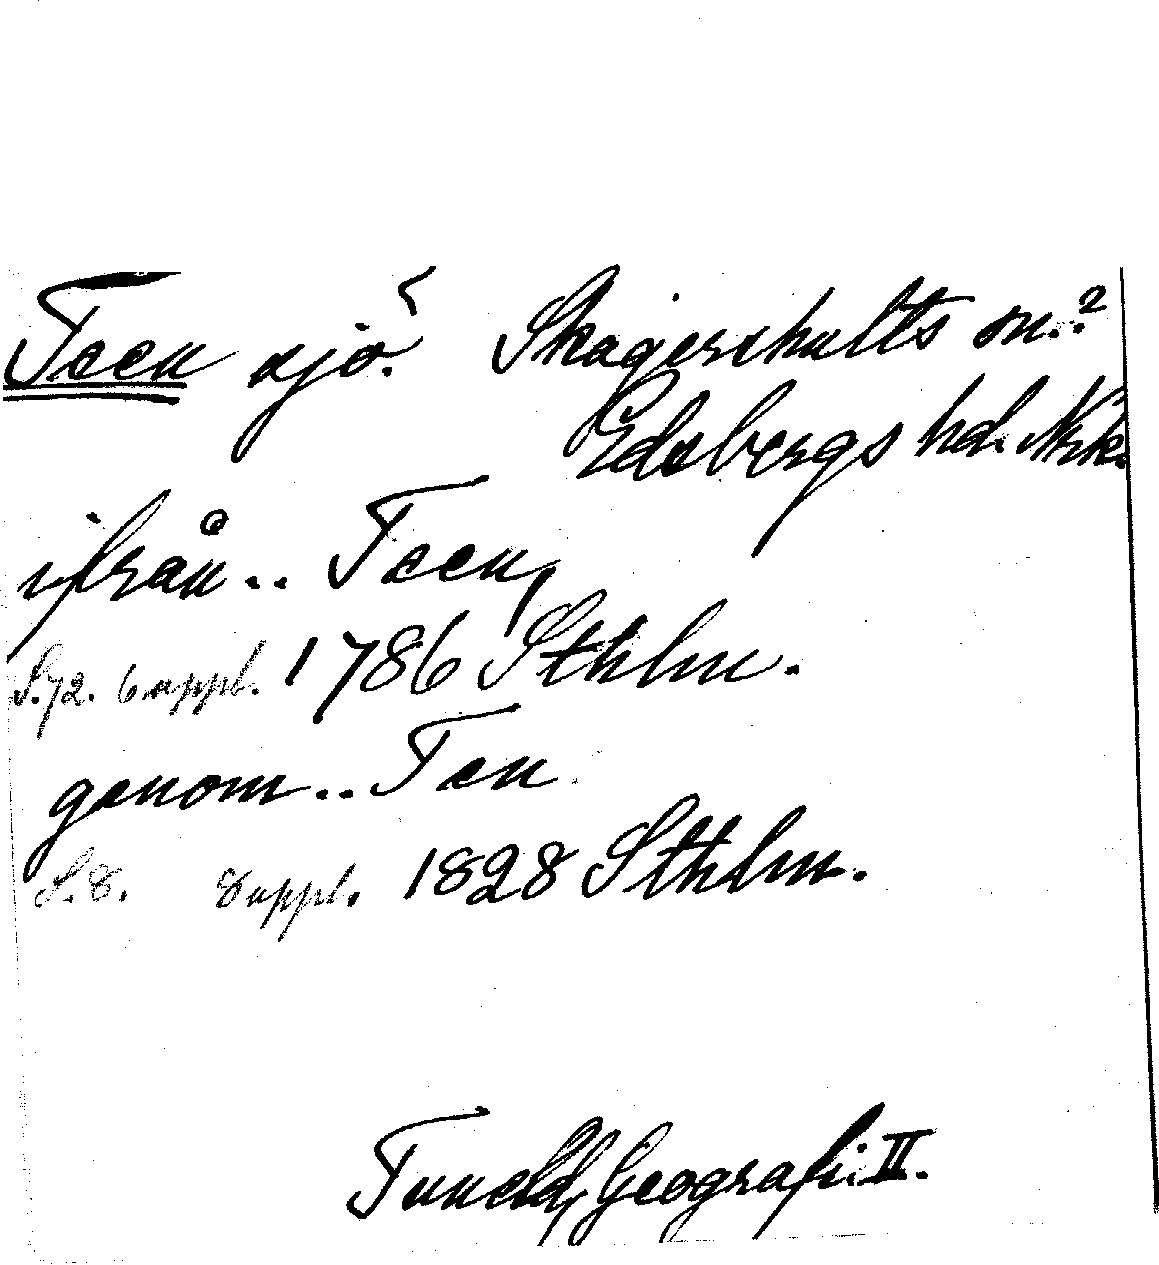 Teen sjö. Skagershults sn.?
Edsbergs hd. Nrk.
ifrån.. Teen,
S. 72. 6 uppl. 1786 Sthlm.
genom.. Ten
S. 8. 8 uppl. 1828 Sthlm.
Tuneld, Geografi. II.